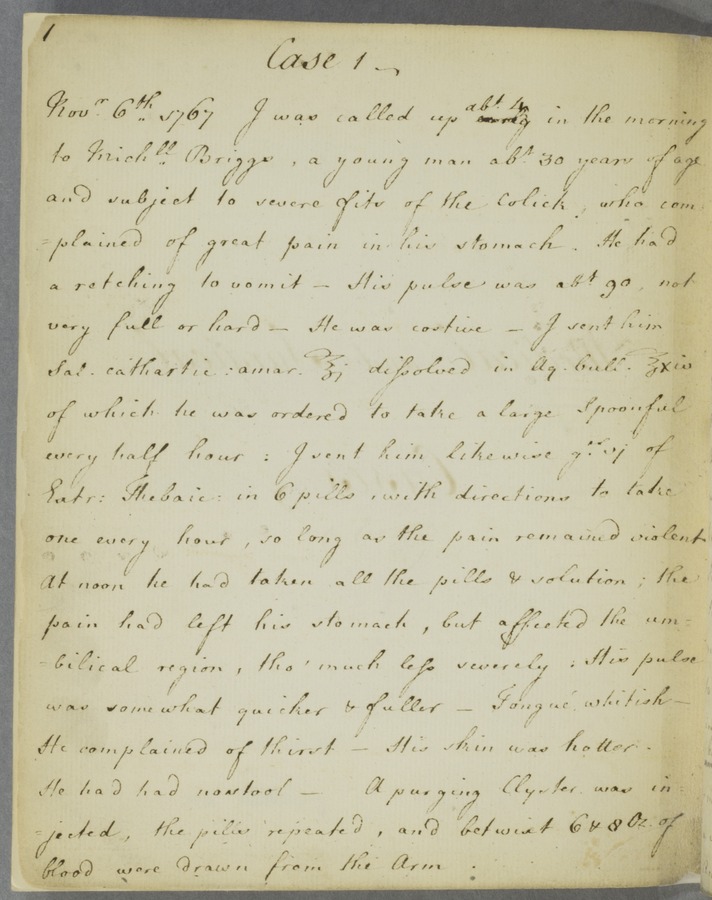 1
Case 1 —
Novr. 6th. 1767 I was called up abt. 4 in the morning
to Michll. Briggs, a young man abt. 30 years of age
and subject to severe fits of the Colick, who com
=plained of great pain in his stomach. He had
a retching to vomit — His pulse was abt. 90, not
very full or hard — He was costive — I sent him
Sal. cathartic: amar. ℥j dissolved in Aq. bull. ℥xiv
of which he was ordered to take a large Spoonful
every half hour: I sent him likewise grs. vj of
Extr: Thebaic: in 6 pills, with directions to take
one every hour, so long as the pain remained violent
At noon he had taken all the pills & solution; the
pain had left his stomach, but affected the um=
=bilical region, tho' much less severely: His pulse
was somewhat quicker & fuller — Tongue whitish —
He complained of thirst — His skin was hotter.
He had had no stool — A purging Clyster was in
=jected, the pills repeated, and betwixt 6 & 8 Oz. of
blood were drawn from the Arm.